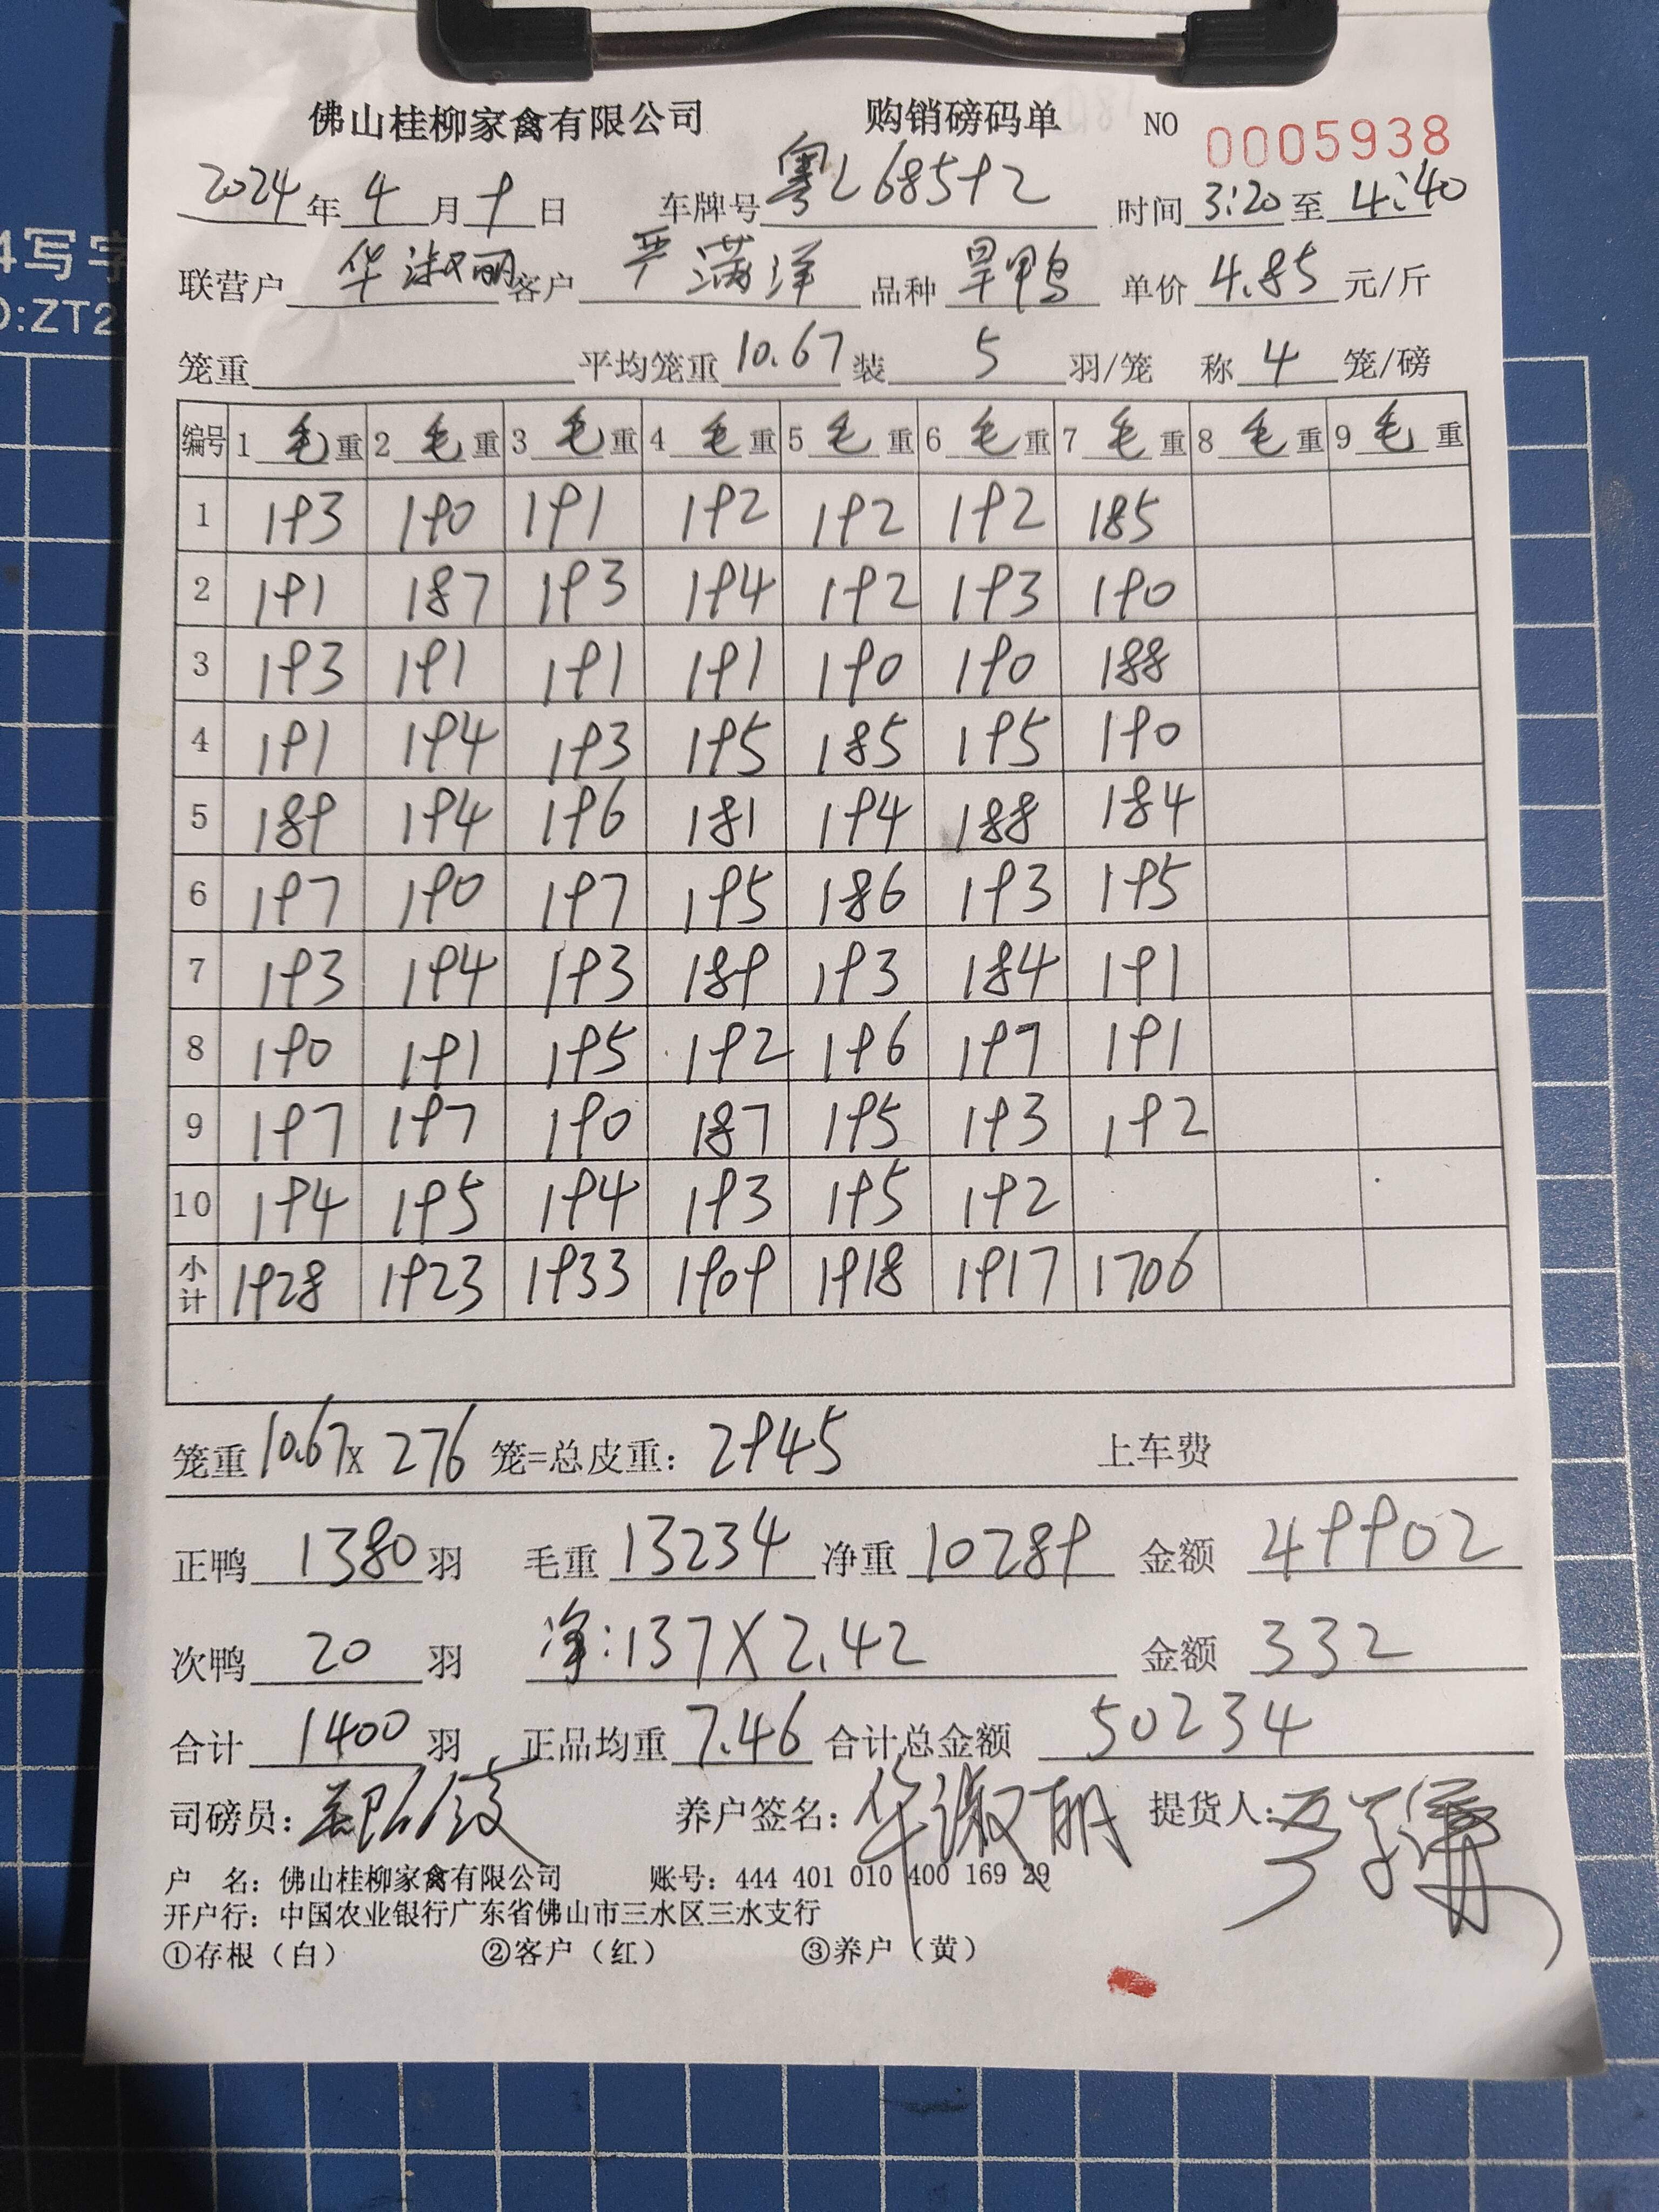 佛山桂柳家禽有限公司 购销磅码单 NO 0005938
2024年4月9日 车牌号粤L68592 时间3:20至4:40
联营户华淑丽 客户严满洋 品种旱鸭 单价4.85元/斤
笼重 平均笼重10.67 装5羽/笼 称4笼/磅
编号 1毛重 2毛重 3毛重 4毛重 5毛重 6毛重 7毛重 8毛重 9毛重
1 193 190 191 192 192 192 185
2 191 187 193 194 192 193 190
3 193 191 191 191 190 190 188
4 191 194 193 195 185 195 190
5 189 194 196 181 194 188 184
6 197 190 197 195 186 193 195
7 193 194 193 189 193 184 191
8 190 191 195 192 196 197 191
9 197 197 190 187 195 193 192
10 194 195 194 193 195 192
小计 1928 1923 1933 1909 1918 1917 1706
笼重10.67X276笼=总皮重:2945 上车费
正鸭1380羽 毛重13234 净重10289 金额49902
次鸭20羽 净:137X2.42 金额332
合计1400羽 正品均重7.46 合计总金额50234
司磅员: 养户签名:华淑丽 提货人:
户 名:佛山桂柳家禽有限公司 账号:444 401 010 400 169 29
开户行:中国农业银行广东省佛山市三水区三水支行
①存根(白) ②客户(红) ③养户(黄)
4写字
D:ZT2